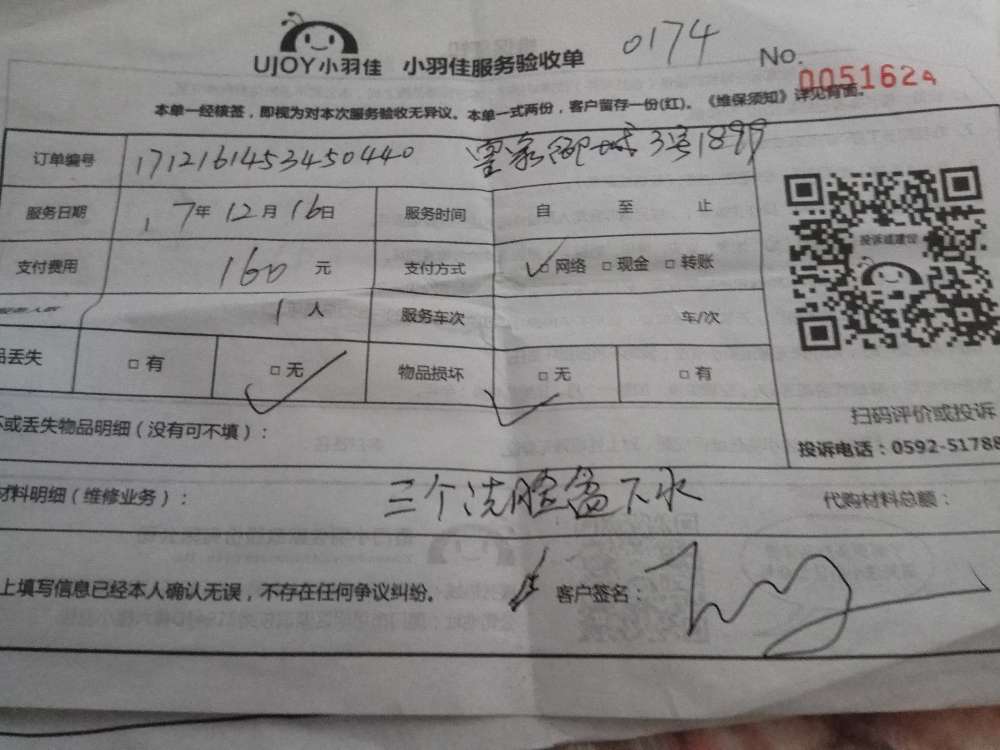 UJOY小羽佳 小羽佳服务验收单 0174 No. 0051624
本单一经核签，即视为对本次服务验收无异议。本单一式两份，客户留存一份(红)。《维保须知》详见背面。
订单编号 1712161453450440 3号1899
服务日期 17年12月16日 服务时间 自 至 止
投诉或建议
支付费用 160元 支付方式 ✓□网络 □现金 □转账
1人 服务车次 车/次
品丢失 □有 □无✓ 物品损坏 □无✓ □有
扫码评价或投诉
坏或丢失物品明细（没有可不填）：
投诉电话：0592-51788
材料明细（维修业务）： 三个洗脸盆下水 代购材料总额：
上填写信息已经本人确认无误，不存在任何争议纠纷。 客户签名：